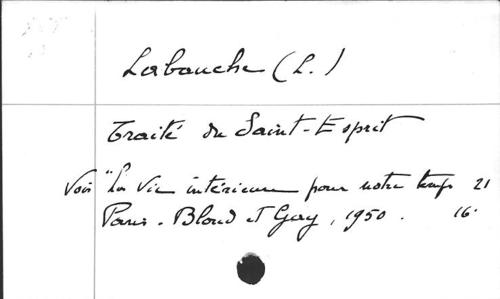 Labauche (L.)
Traité du Saint-Esprit
Voir "La Vie intérieure pour notre temps 21
Paris. Bloud et Gay, 1950. 16°